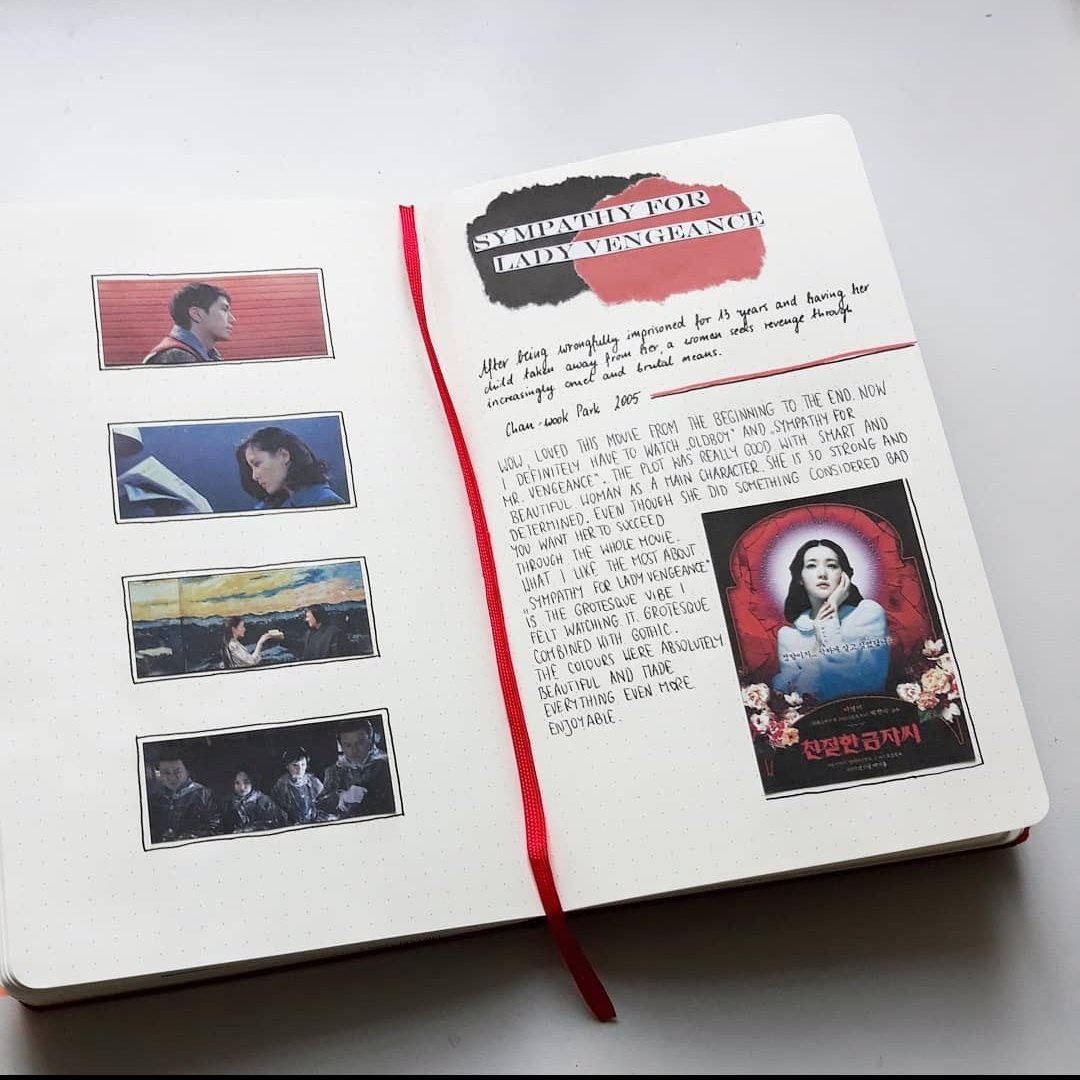 SYMPATHY FOR
LADY VENGEANCE
After being wrongfully imprisoned for 13 years and having her
child taken away from her, a women seeks revenge through
increasingly cruel and brutal means.
Chan-wook Park 2005
WOW, LOVED THIS MOVIE FROM THE BEGINNING TO THE END. NOW
I DEFINITELY HAVE TO WATCH „OLDBOY" AND „SYMPATHY FOR
MR. VENGEANCE". THE PLOT WAS REALLY GOOD, WITH SMART AND
BEAUTIFUL WOMAN AS A MAIN CHARACTER. SHE IS SO STRONG AND
DETERMINED. EVEN THOUGH SHE DID SOMETHING CONSIDERED BAD
YOU WANT HER TO SUCCEED
THROUGH THE WHOLE MOVIE.
WHAT I LIKE THE MOST ABOUT
„SYMPATHY FOR LADY VENGEANCE"
IS THE GROTESQUE VIBE I
FELT WATCHING IT. GROTESQUE
COMBINED WITH GOTHIC.
THE COLOURS WERE ABSOLUTELY
BEAUTIFUL AND MADE
EVERYTHING EVEN MORE
ENJOYABLE.
친절한 금자씨